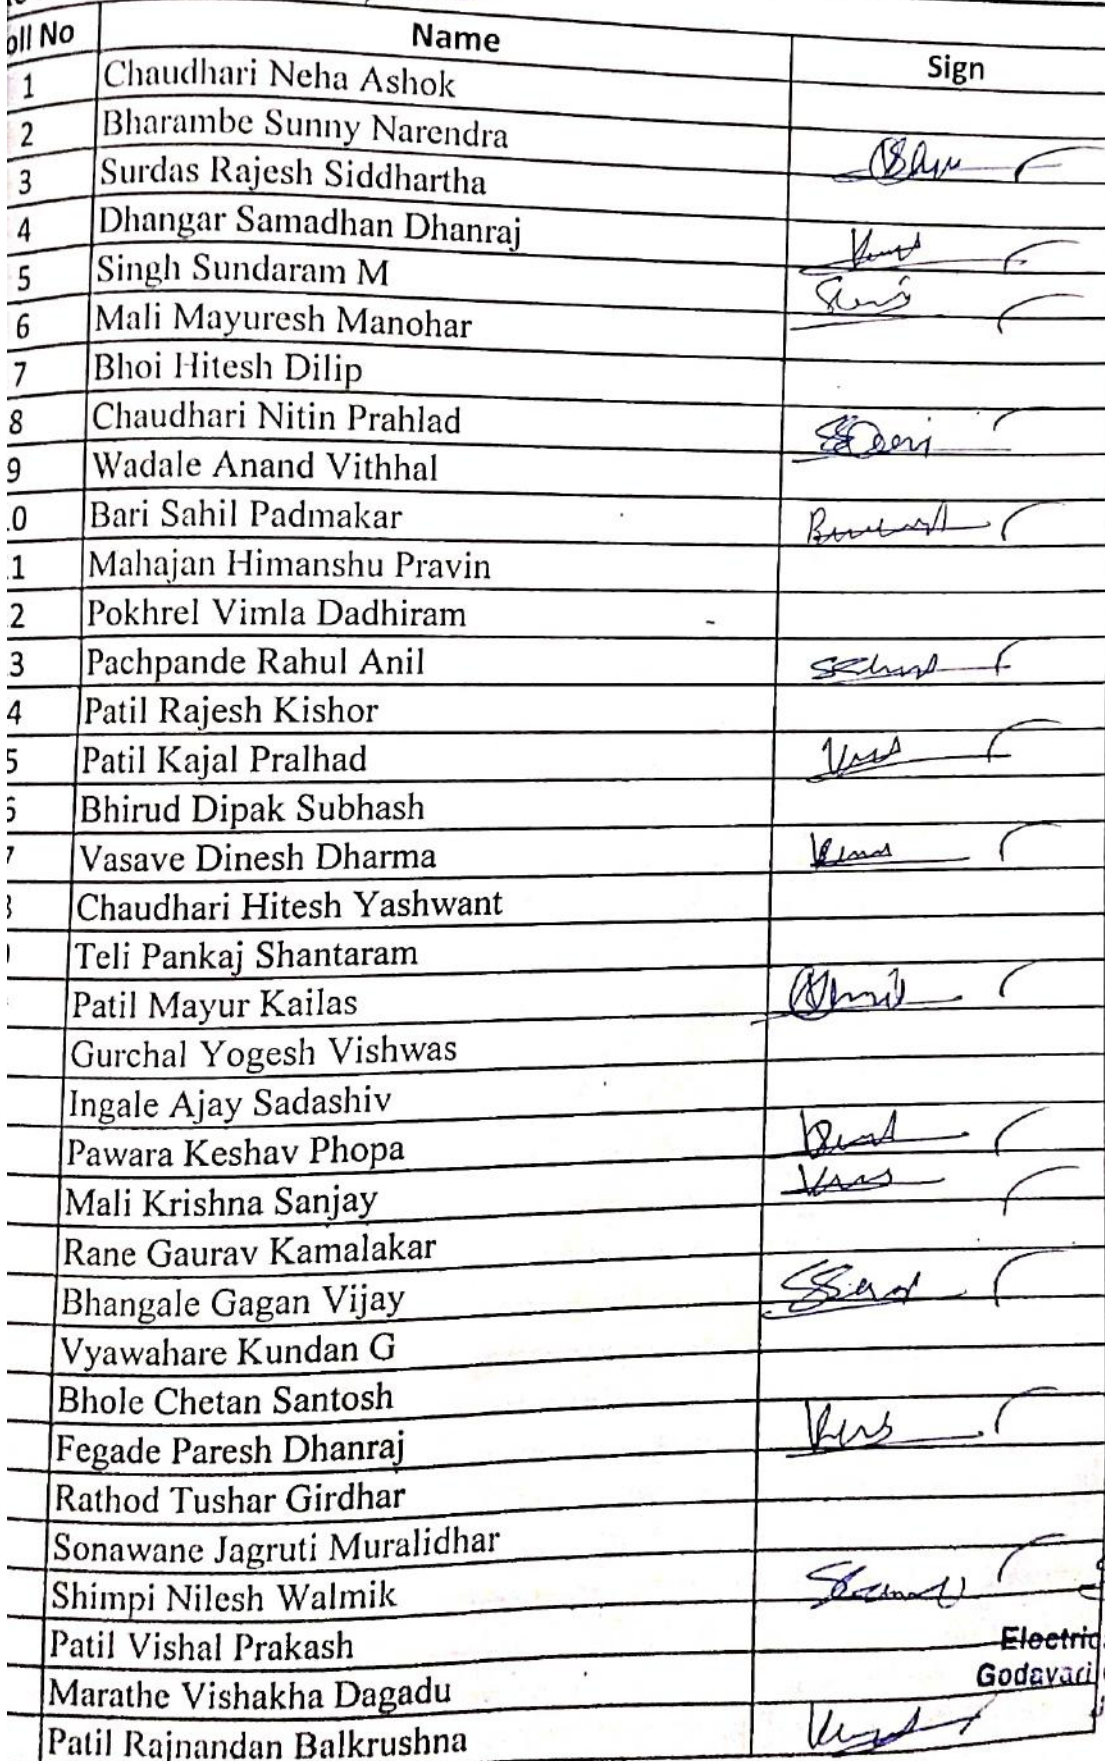 oll No Name Sign
1 Chaudhari Neha Ashok
2 Bharambe Sunny Narendra
3 Surdas Rajesh Siddhartha
4 Dhangar Samadhan Dhanraj
5 Singh Sundaram M
6 Mali Mayuresh Manohar
7 Bhoi Hitesh Dilip
8 Chaudhari Nitin Prahlad
9 Wadale Anand Vithhal
0 Bari Sahil Padmakar
1 Mahajan Himanshu Pravin
2 Pokhrel Vimla Dadhiram
3 Pachpande Rahul Anil
4 Patil Rajesh Kishor
5 Patil Kajal Pralhad
Bhirud Dipak Subhash
7 Vasave Dinesh Dharma
Chaudhari Hitesh Yashwant
Teli Pankaj Shantaram
Patil Mayur Kailas
Gurchal Yogesh Vishwas
Ingale Ajay Sadashiv
Pawara Keshav Phopa
Mali Krishna Sanjay
Rane Gaurav Kamalakar
Bhangale Gagan Vijay
Vyawahare Kundan G
Bhole Chetan Santosh
Fegade Paresh Dhanraj
Rathod Tushar Girdhar
Sonawane Jagruti Muralidhar
Shimpi Nilesh Walmik
Patil Vishal Prakash Electric
Marathe Vishakha Dagadu Godavari
Patil Rajnandan Balkrushna